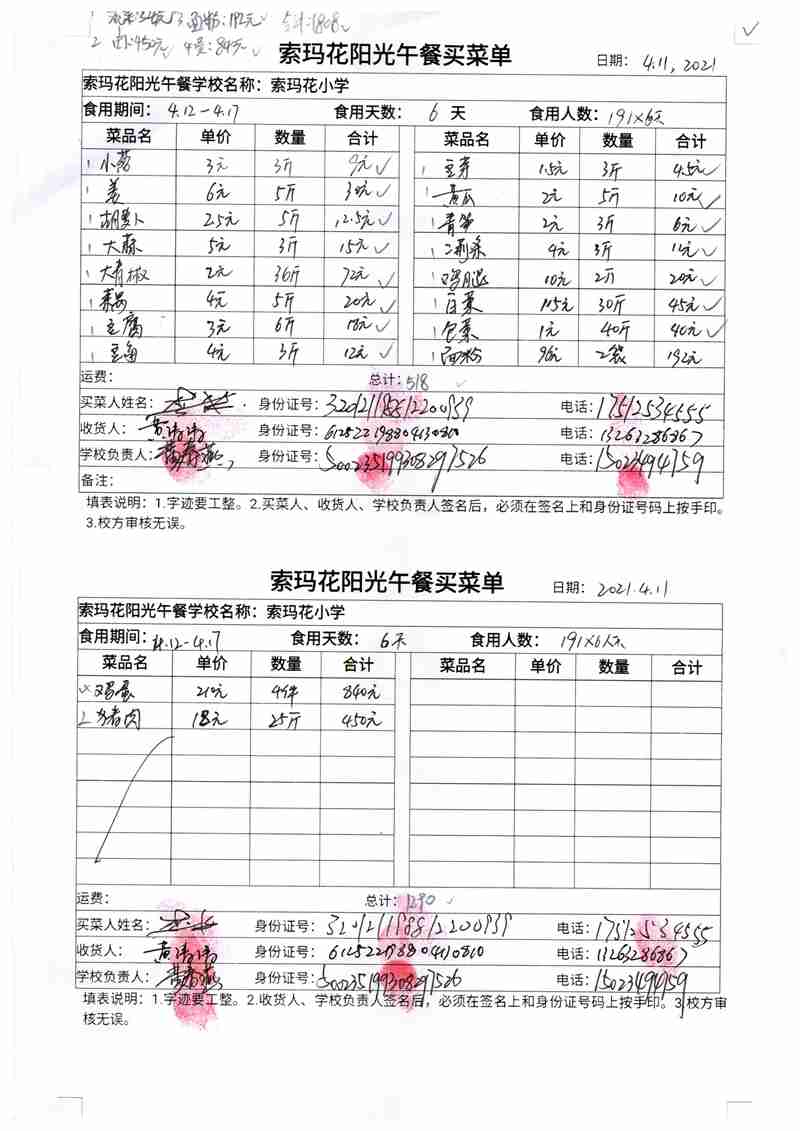 2 肉:450元 4蛋:840元
索玛花阳光午餐买菜单 日期: 4.11, 2021
索玛花阳光午餐学校名称: 索玛花小学
食用期间: 4.12-4.17 食用天数: 6 天 食用人数: 191×6天
菜品名 单价 数量 合计 菜品名 单价 数量 合计
小葱 3元 3斤 9元 豆芽 1.5元 3斤 4.5元
姜 6元 5斤 30元 黄瓜 2元 5斤 10元
胡萝卜 2.5元 5斤 12.5元 青笋 2元 3斤 6元
大蒜 5元 3斤 15元 二荆条 4元 3斤 12元
大青椒 2元 36斤 72元 鸡腿 10元 2斤 20元
4元 5斤 20元 白菜 1.5元 30斤 45元
豆腐 3元 6斤 18元 包菜 1元 40斤 40元
豆角 4元 3斤 12元 面粉 96元 2袋 192元
运费: 总计: 518
买菜人姓名: 身份证号: 电话: 17512534555
收货人: 黄涛涛 身份证号: 612522198804130810 电话: 13263286867
学校负责人: 身份证号: 500235199308297526 电话: 15023494759
备注:
填表说明: 1.字迹要工整。2.买菜人、收货人、学校负责人签名后，必须在签名上和身份证号码上按手印。
3.校方审核无误。
索玛花阳光午餐买菜单 日期: 2021.4.11
索玛花阳光午餐学校名称: 索玛花小学
食用期间: 4.12-4.17 食用天数: 6天 食用人数: 191×6天
菜品名 单价 数量 合计 菜品名 单价 数量 合计
鸡蛋 210元 4件 840元
2 猪肉 18元 25斤 450元
运费: 总计: 1290
买菜人姓名: 身份证号: 电话: 17512534555
收货人: 黄涛涛 身份证号: 电话: 13263286867
学校负责人: 身份证号: 500235199308297526 电话: 15023494759
填表说明: 1.字迹要工整。2.收货人、学校负责人签名后，必须在签名上和身份证号码上按手印。3.校方审
核无误。